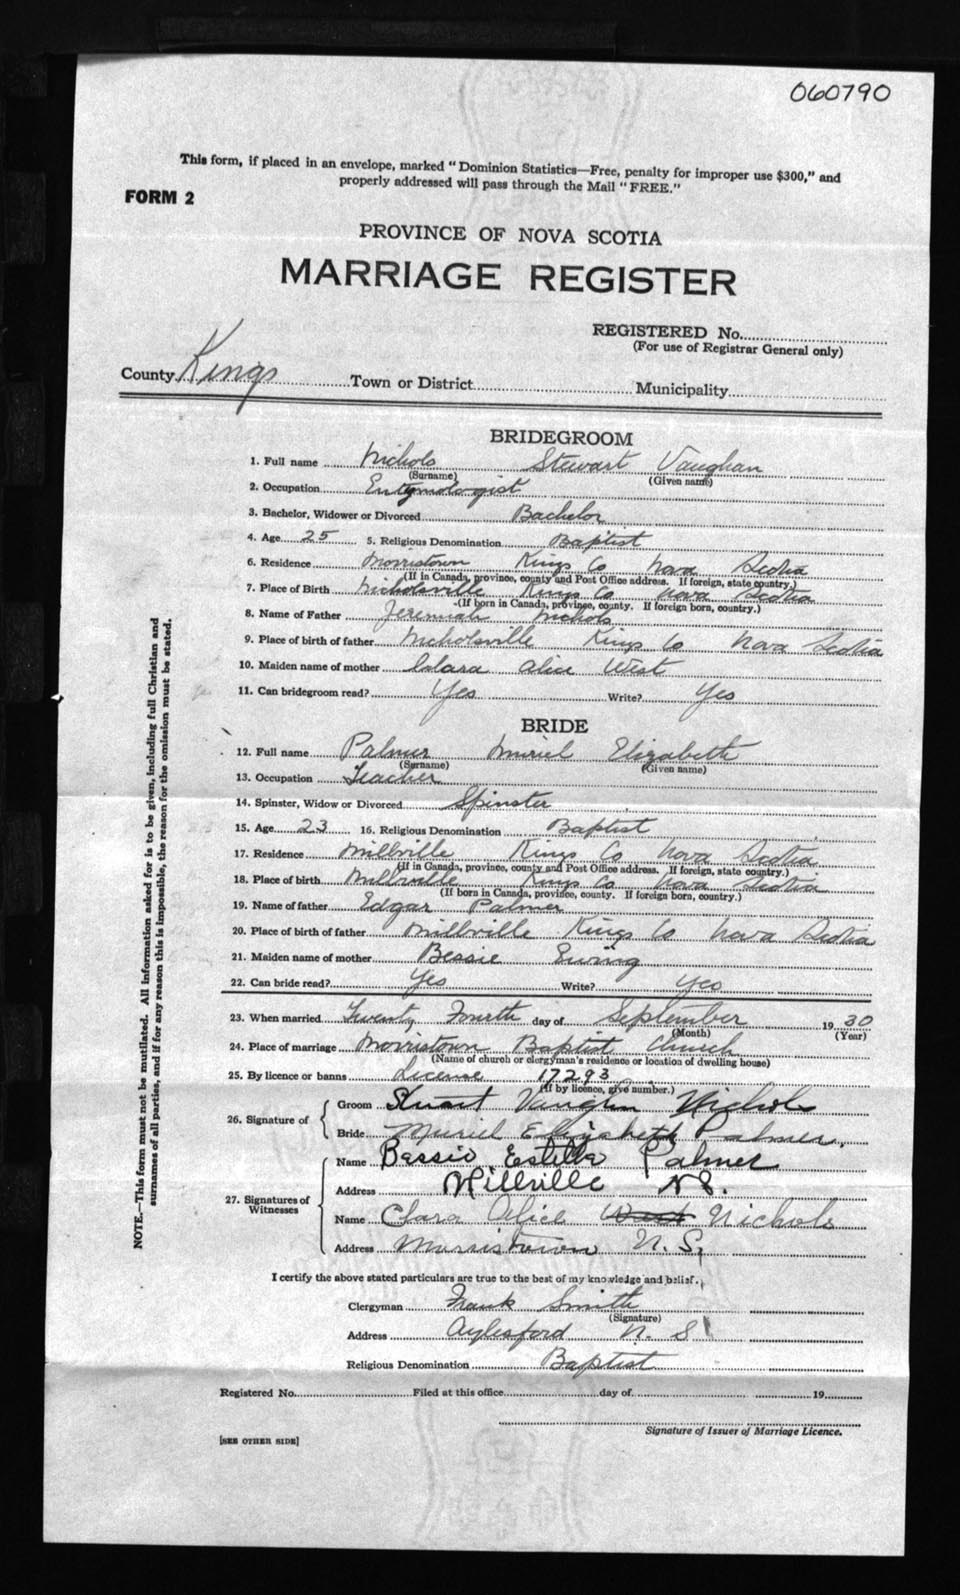 060790
This form, if placed in an envelope, marked "Dominion Statistics—Free, penalty for improper use $300," and
properly addressed will pass through the Mail "FREE."
FORM 2
PROVINCE OF NOVA SCOTIA
MARRIAGE REGISTER
REGISTERED No.
(For use of Registrar General only)
County Kings Town or District Municipality
BRIDEGROOM
1. Full name Nichols Stewart Vaughan
(Surname) (Given name)
2. Occupation Entymologist
3. Bachelor, Widower or Divorced Bachelor
4. Age 25 5. Religious Denomination Baptist
6. Residence Morristown Kings Co Nova Scotia
(If in Canada, province, county and Post Office address. If foreign, state country.)
7. Place of Birth Nicholsville Kings Co Nova Scotia
(If born in Canada, province, county. If foreign born, country.)
8. Name of Father Jeremiah Nichols
9. Place of birth of father Nicholsville Kings Co Nova Scotia
10. Maiden name of mother Clara Alice West
11. Can bridegroom read? Yes Write? Yes
BRIDE
12. Full name Palmer Muriel Elizabeth
(Surname) (Given name)
13. Occupation Teacher
14. Spinster, Widow or Divorced Spinster
15. Age 23 16. Religious Denomination Baptist
17. Residence Millville Kings Co Nova Scotia
(If in Canada, province, county and Post Office address. If foreign, state country.)
18. Place of birth Millville Kings Co Nova Scotia
(If born in Canada, province, county. If foreign born, country.)
19. Name of father Edgar Palmer
20. Place of birth of father Millville Kings Co Nova Scotia
21. Maiden name of mother Bessie Ewing
22. Can bride read? Yes Write? Yes
23. When married Twenty Fourth day of September 19 30
(Month) (Year)
24. Place of marriage Morristown Baptist Church
(Name of church or clergyman's residence or location of dwelling house)
25. By licence or banns License 17293
(If by licence, give number.)
26. Signature of
Groom Stuart Vaughn Nichols
Bride Muriel Elizabeth Palmer.
27. Signatures of Witnesses
Name Bessie Estella Palmer
Address Millville NS.
Name Clara Alice West Nichols
Address Morristown N. S.
I certify the above stated particulars are true to the best of my knowledge and belief.
Clergyman Frank Smith
(Signature)
Address Aylesford N. S
Religious Denomination Baptist
Registered No. Filed at this office day of 19
Signature of Issuer of Marriage Licence.
[SEE OTHER SIDE]
NOTE.—This form must not be mutilated. All information asked for is to be given, including full Christian and
surnames of all parties, and if for any reason this is impossible, the reason for the omission must be stated.